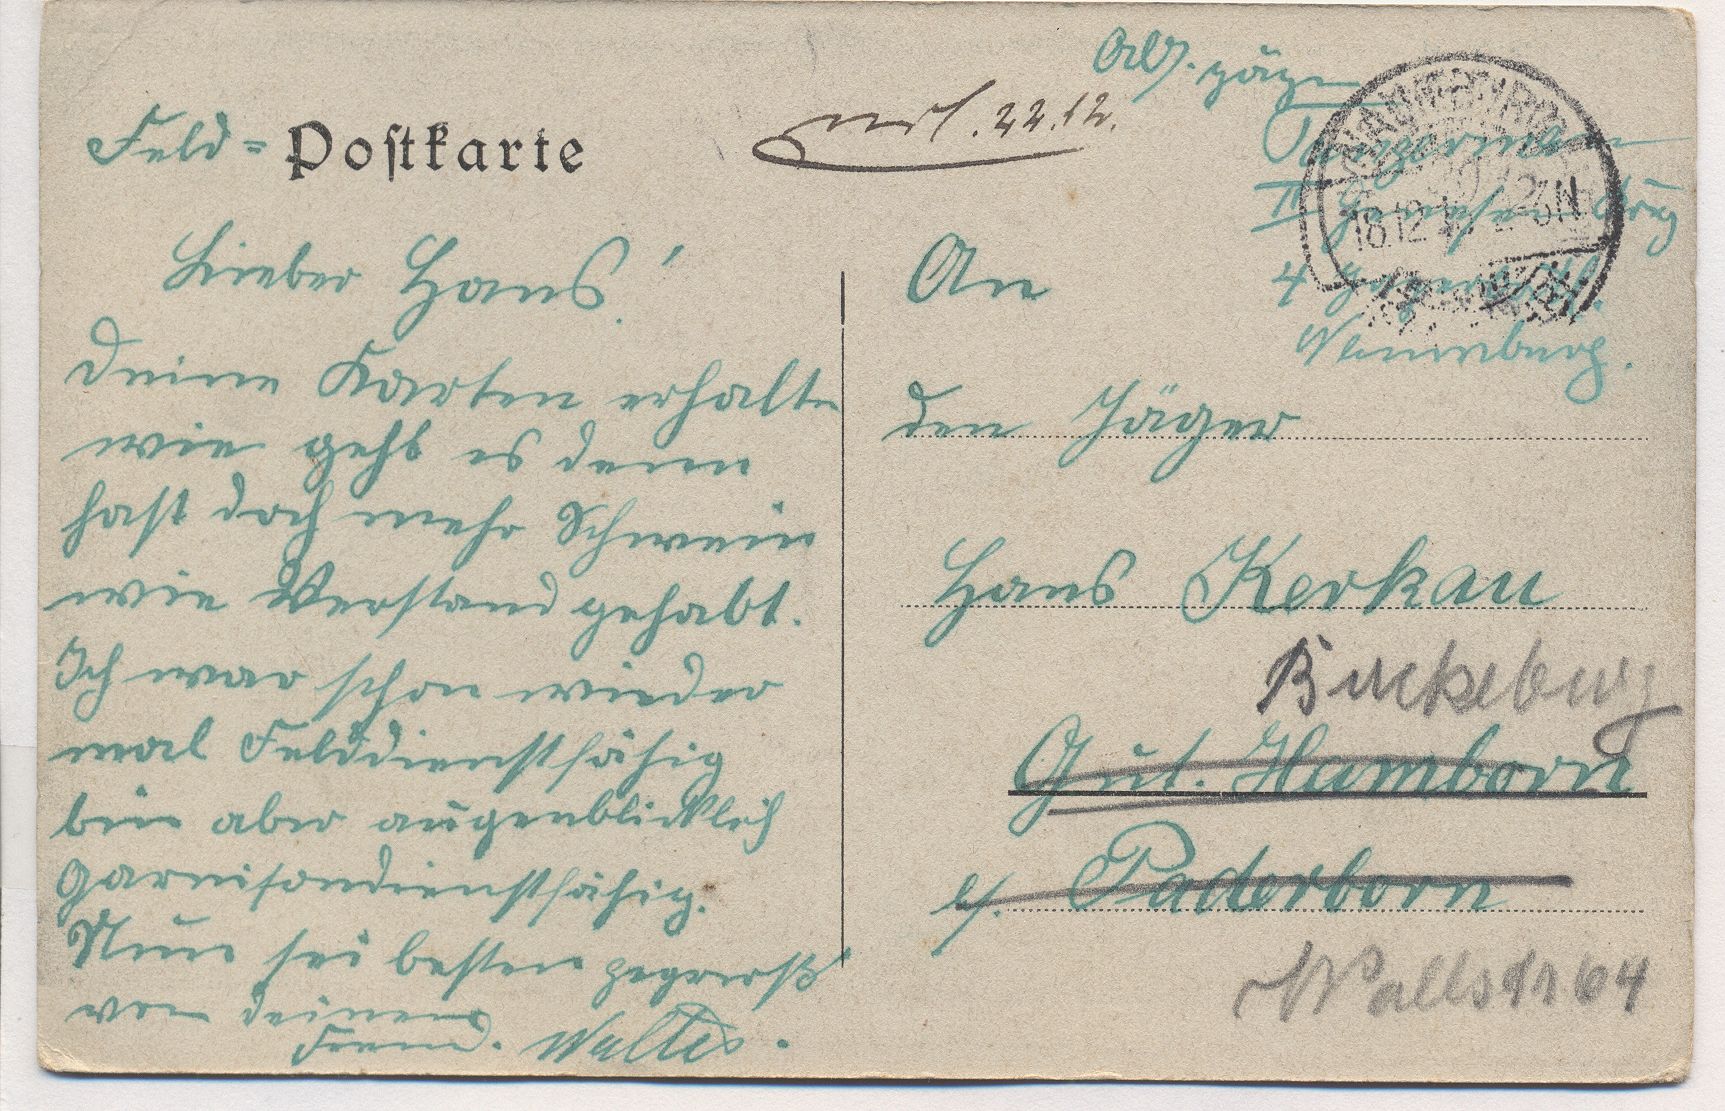 Feld=Postkarte
erl. 22.12.
Abs. Jäger
4
Naumburg.
18.12
2-3N
Lieber Hans!
Deine Karten erhalten
wie geht es denn
hast doch mehr Schwein
wie Verstand gehabt.
Ich war schon wieder
mal Felddienstfähig
bin aber augenblicklich
Garnisondienstfähig.
Nun sei bestens gegrüßt
von deinem
Freund. Walter.
An
den Jäger
Hans Kerkau
Bückeburg
Gut. Hamborn
b/. Paderborn
Wallstr. 64